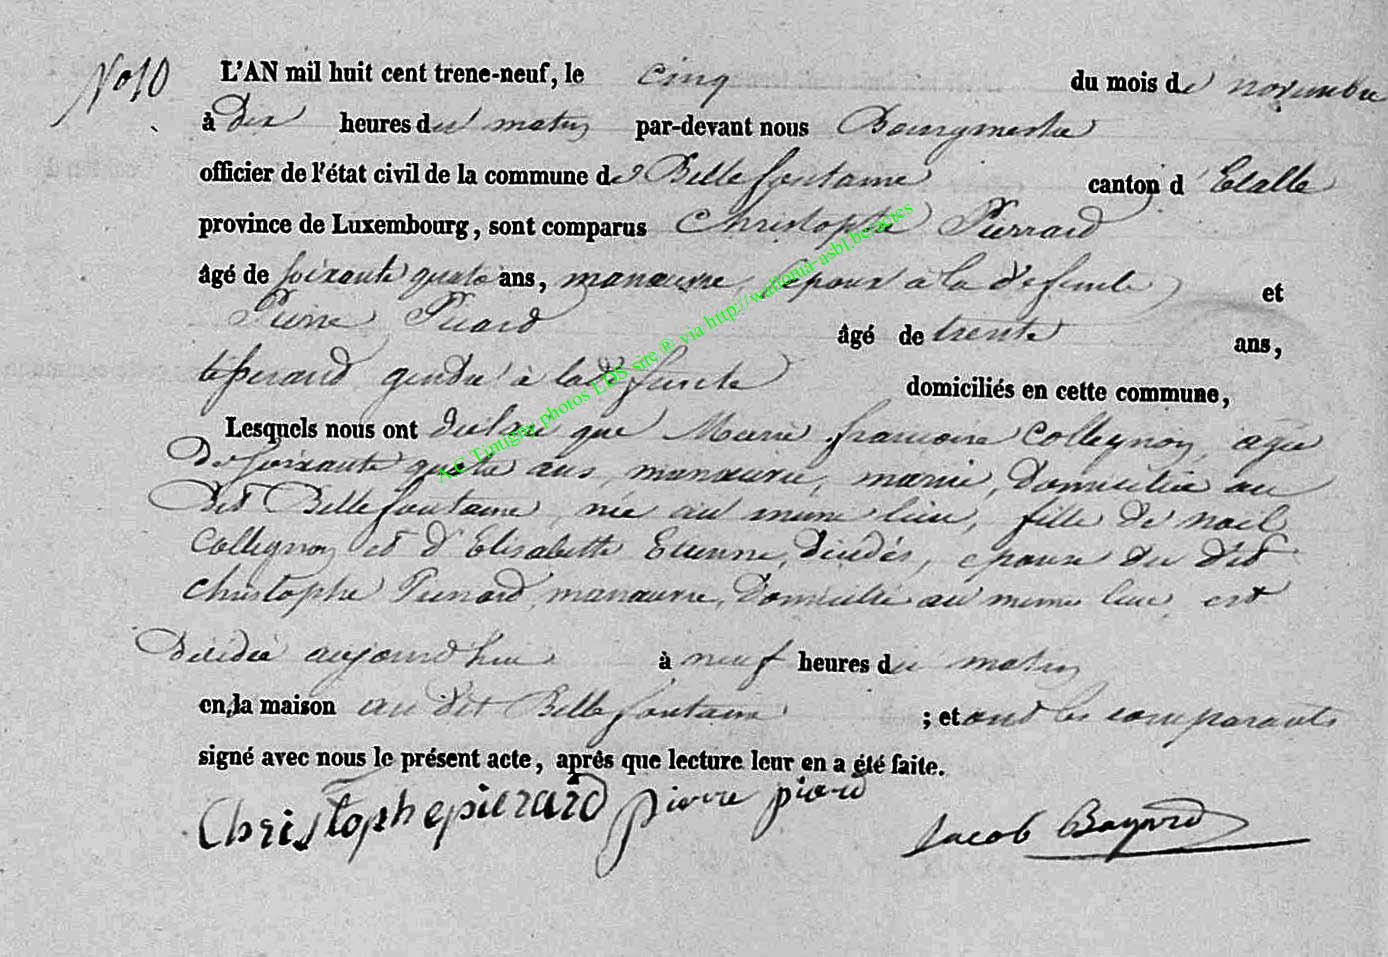 No 10 L'AN mil huit cent trene-neuf, le cinq du mois de novembre
à dix heures du matin par-devant nous Bourgmestre
officier de l'état civil de la commune de Bellefontaine canton d'Etalle
province de Luxembourg, sont comparus Christophe Pierrard
âgé de soixante quatre ans, manœuvre, epoux à la défunte et
Pierre Piard âgé de trente ans,
tisserand gendre à la défunte domiciliés en cette commune,
Lesquels nous ont déclaré que Marie françoise Collegnon, agée
De soixante quatre ans, manœuvre, mariée, Domiciliée au
Dit Bellefontaine, née au même lieu, fille de noël
Collegnon et d'Elisabette Etienne, décédés, epouse du dit
christophe Pierrard, manœuvre, Domicilié au même lieu, est
Décédée aujourd'hui à neuf heures du matin
en la maison au dit Bellefontaine ; et ont les comparants
signé avec nous le présent acte, après que lecture leur en a été faite.
Christophe pierard pierre piard Jacob Bayard
A.C Tintigny photos LDS site ® via http://wallonia-asbl.be/actes